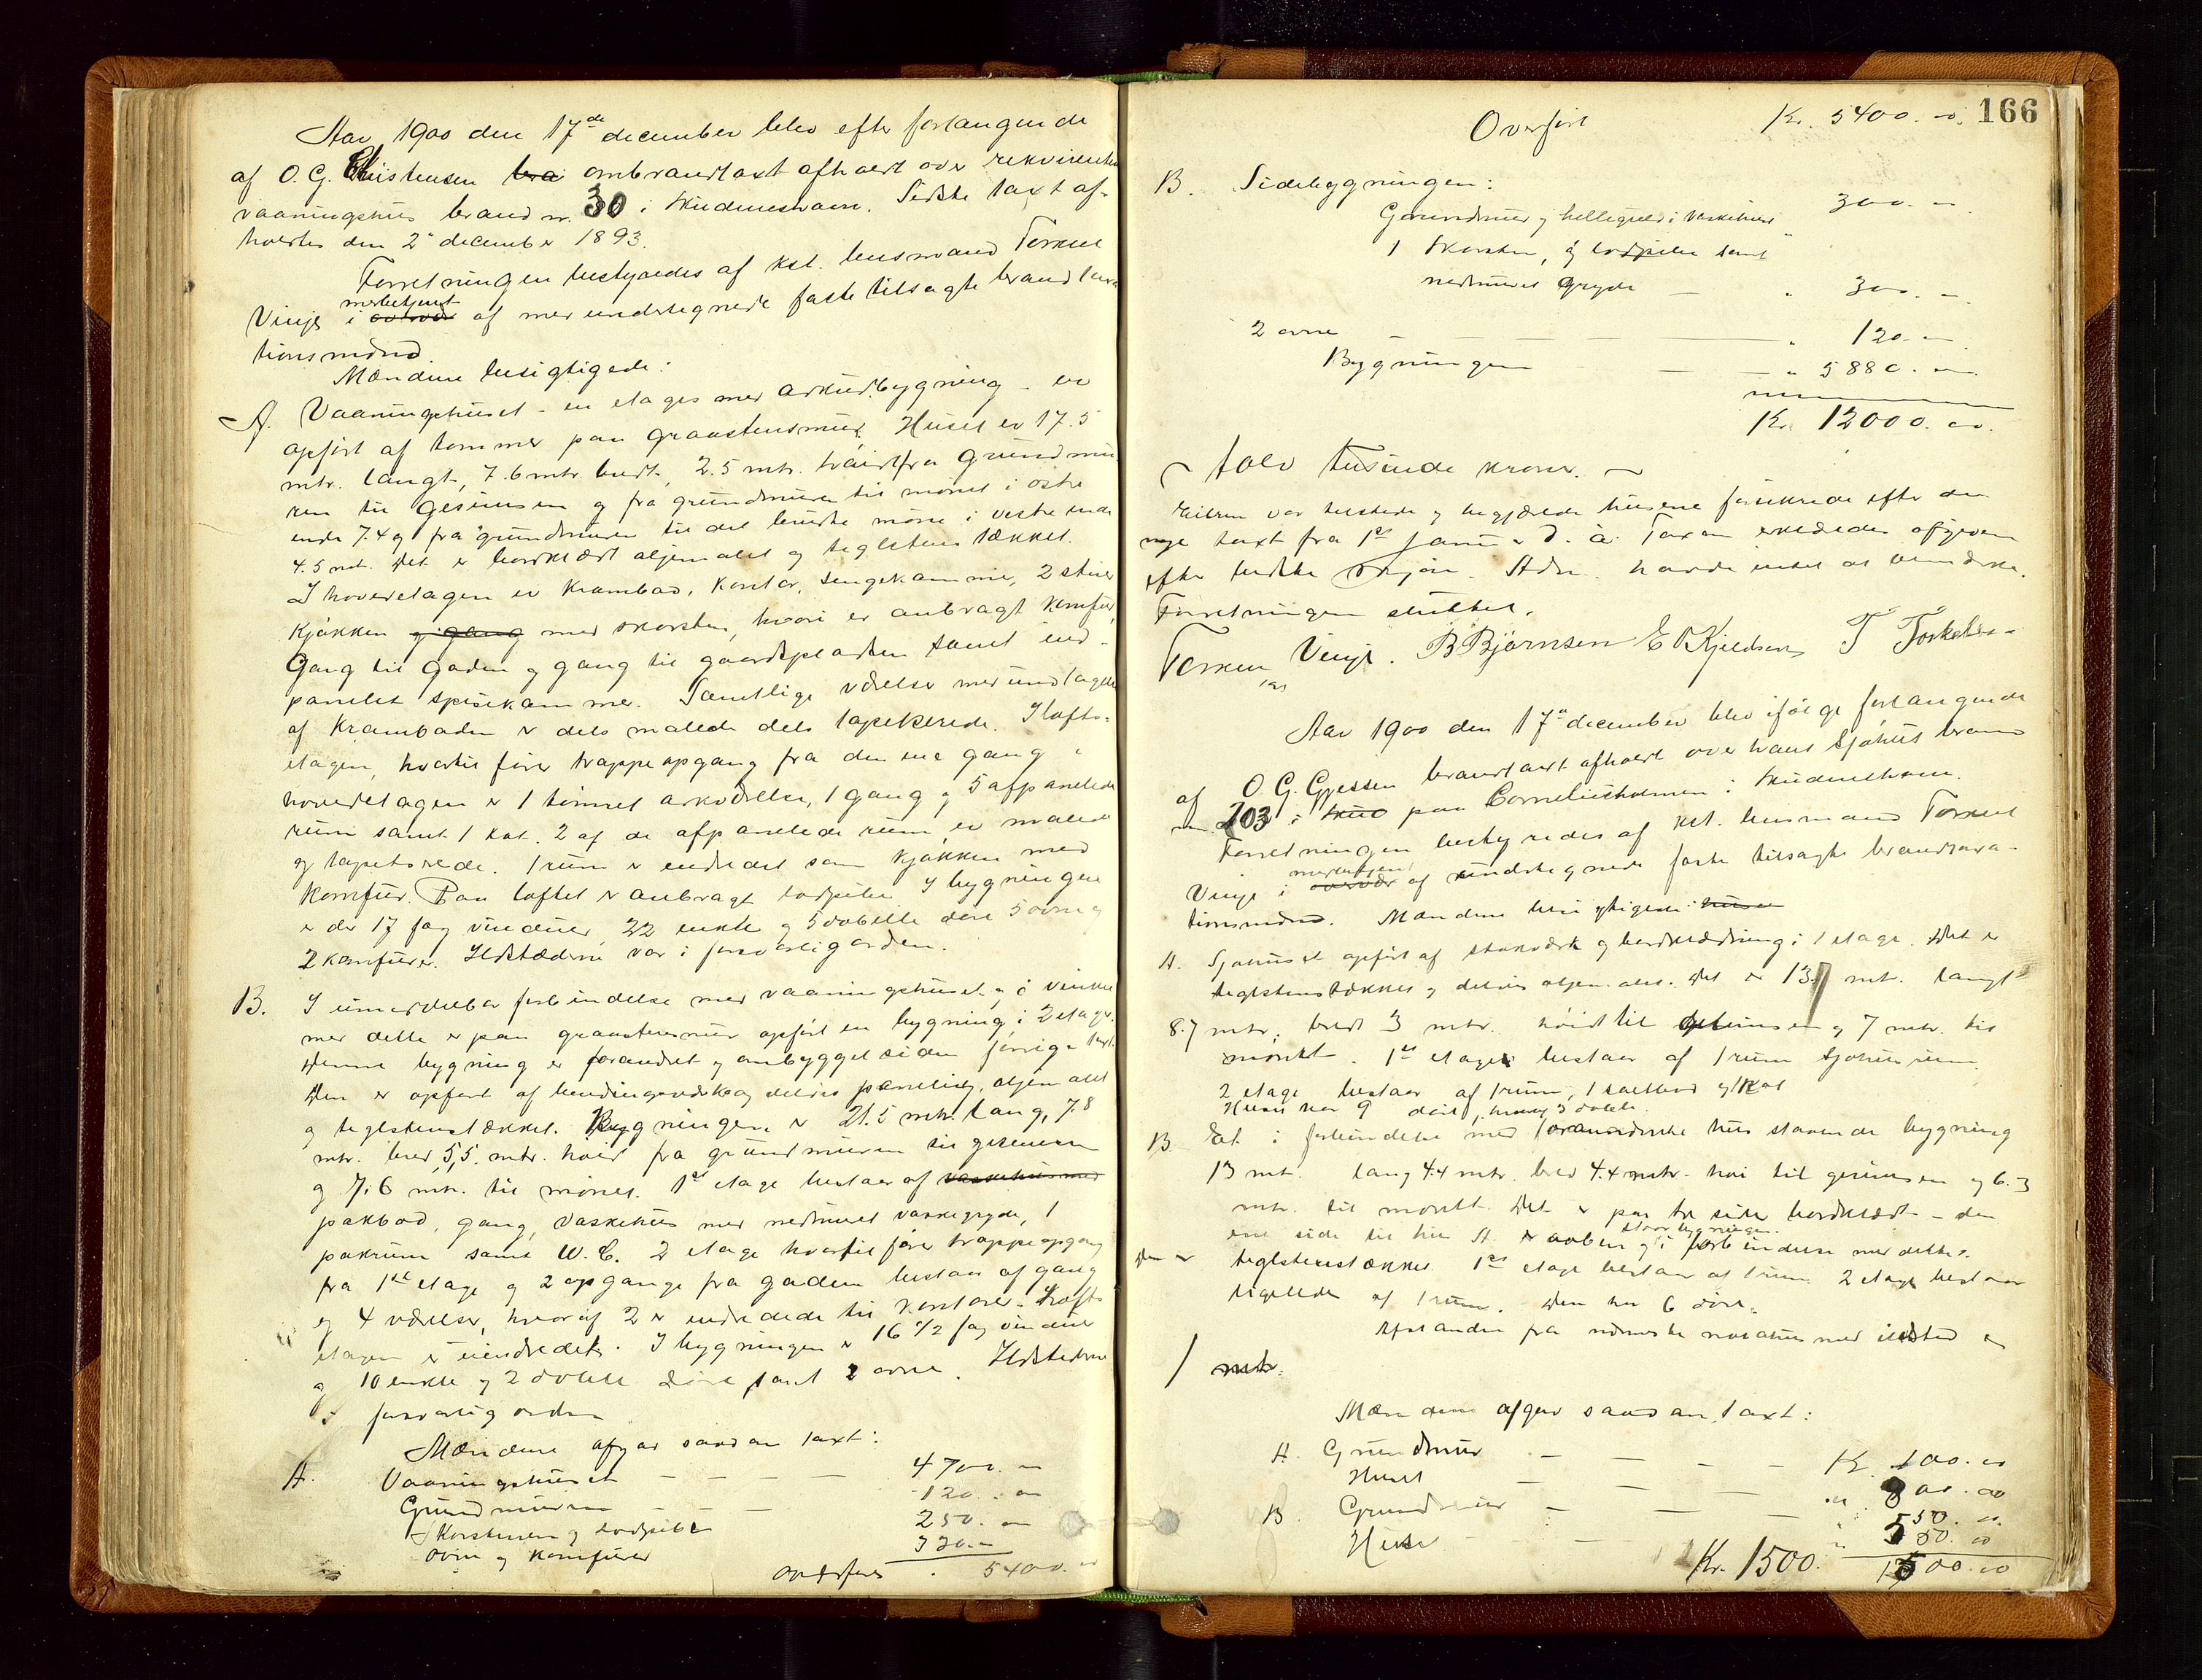 Aar 1900 den 17de december blev efter forlangende
af O. G. Christensen bra ombrandtaxt afholdt over rekvirentens
vaaningshus brand nr. 30 i Skudeneshavn. Sidste taxt af-
holdtes den 2den december 1893.
Forretningen bestyredes af kst. lensmand Torkel
Vinje i overvær medbetjent af med undertegnede faste tilsagte brandtaxa-
tionsmænd.
Mændene besigtigede:
A. Vaaningshuset - en etages med arkudbygning - er
opført af tømmer paa graastensmur. Huset er 17.5
mtr. langt, 7.6 mtr. bredt, 2.5 mtr. høidt fra grundmu-
ren til gesimsen og fra grundmuren til mønet i østre
ende 7.4 og fra grundmuren til det lavere møne i vestre ende
4.5 mtr. Det er bordklædt oljemalet og teglstens tækket.
I hovedetagen er krambod, kontor, sengekammer, 2 stuer
kjøkken og gang med skorsten, hvori er anbragt komfur,
Gang til gaden og gang til gaardspladsen samt ind-
panelet spisekammer. Samtlige værelser med undtagelse
af kramboden er dels malede dels tapetserede. I lofts-
etagen, hvortil fører trappeopgang fra den ene gang i
hovedetagen er 1 tømret arkværelse, 1 gang og 5 afpanelede
rum samt 1 kot. 2 af de afpanelede rum er malede
og tapetserede. 1 rum er indredet som kjøkken med
komfur. Paa loftet er anbragt lodpibe. I bygningen
er der 17 fag vinduer, 22 enkle og 5 dobbelte døre 5 ovne og
2 komfurer. Ildstæderne var i forsvarlig orden.
B. I umiddelbar forbindelse med vaaningshuset og i vinkel
med dette er paa graastensmur opført en bygning i 2 etager.
Denne bygning er forandret og ombygget siden forrige taxt.
Den er opført af bindingsværk og delvis paneling, oljemalet
og teglstenstækket. Bygningen er 21.5 mtr. lang, 7.8
mtr. bred 5,5 mtr. høid fra grundmuren til gesimsen
og 7,6 mtr. til mønet. 1ste etage bestaar af vaskehus med
pakbod, gang, vaskehus med nedmuret vaskegryde, 1
pakrum samt W.C. 2 etage hvortil fører trappeopgang
fra 1ste etage og 2 opgange fra gaden bestaar af gang
og 4 værelser, hvoraf 2 er indredede til kontorer. Lofts-
etagen er uindredet. I bygningen er 16 1/2 fag vinduer
og 10 enkle og 2 doble døre samt 2 ovne. Ildstederne
i forsvarlig orden
Mændene afgav saadan taxt:
A. Vaaningshuset 4700.00
Grundmuren 120.00
Skorstenen og lodpibe 250.00
Ovne og komfurer 330.00
Overføres 5400.00
166
Overført Kr. 5400.00
B. Sidebygningen:
Grundmur og hellegulv i vaskehuset 300.00
1 skorsten, og lodpibe samt
nedmuret gryde 300.00
2 ovne 120.00
Bygningen 5880.00
Kr. 12000.00
~ tolv tusinde kroner. ~
Eieren var tilstede og begjærede husene forsikrede efter den
nye taxt fra 1ste januar d. a. Taxten erklæredes afgiven
efter bedste skjøn. Adm. havde intet at bemærke.
Forretningen sluttet.
Torkel Vinje. B Bjørnsen E O Kjeldsen T Torkelsen
kst
Aar 1900 den 17de december blev ifølge forlangende
af O. G. Gjessen brandtaxt afholdt over hans Sjøhus brand
nr. 203 i Skud paa Corneliusholmen i Skudeneshavn.
Forretningen bestyredes af kst. lensmand Torkel
Vinje i overvær medbetjent af undertegnede faste tilsagte brandtaxa-
tionsmænd. Mændene besigtigede husene
A. Sjøhuset opført af stavværk og bordklædning i 1 etage. Det er
teglstenstækket og delvis oljemalet. Det er 13.7 mtr. langt
8.7 mtr. bredt 3 mtr. høidt til gesimsen og 7 mtr. til
mønet. 1ste etage bestaar af 1 rum Sjøhusrum
2 etage bestaar af 1 rum, 1 saltbod og 1 kot
Huset har 9 døre, hvoraf 3 doble.
B. Et i forbindelse med forannævnte hus staaende bygning
13 mtr. lang 4.4 mtr. bred 4.4 mtr. høi til gesimsen og 6.3
mtr. til mønet. Det er paa tre sider bordklædt - den
ene side til hus A er aaben og i forbindelse med dette.
Den er teglstenstækket. 1ste etage bestaar af 1 rum 2 etage bestaar
ligeledes af 1 rum. Den har 6 døre.
Afstanden fra nærmeste nabohus med ildsted er
1 mtr.
Mændene afgav saadan taxt:
A. Grundmur Kr. 100.00
Huset 800.00
B. Grundmur 50.00
Huset 550.00
Kr. 1500. 1500.00